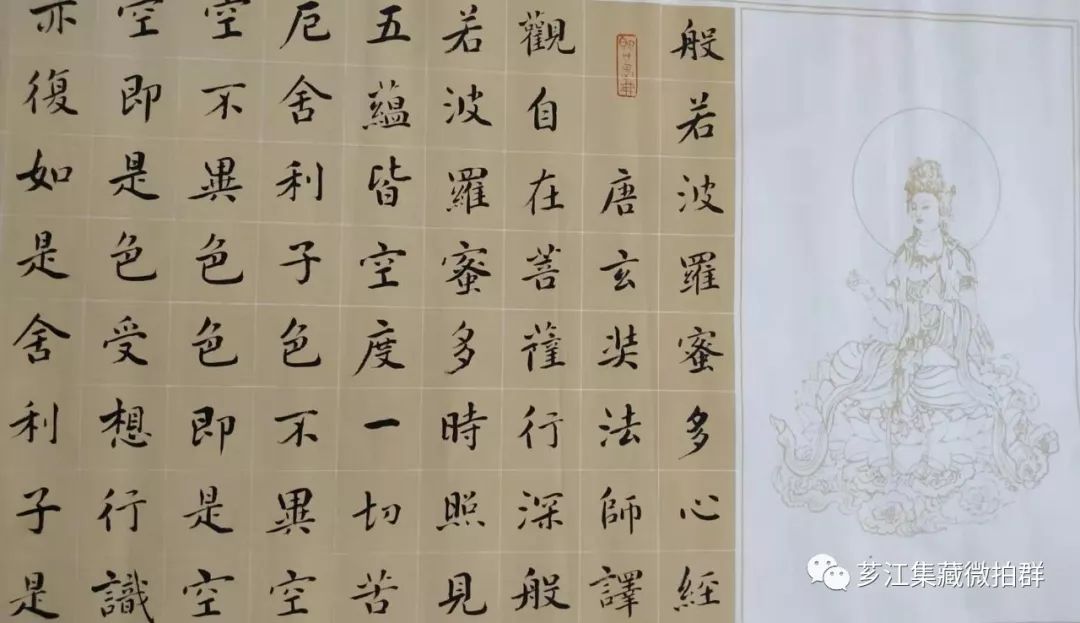 般若波羅蜜多心經
唐玄奘法師譯
觀自在菩薩行深般
若波羅蜜多時照見
五蘊皆空度一切苦
厄舍利子色不異空
空不異色色即是空
空即是色受想行識
亦復如是舍利子是
芗江集藏微拍群